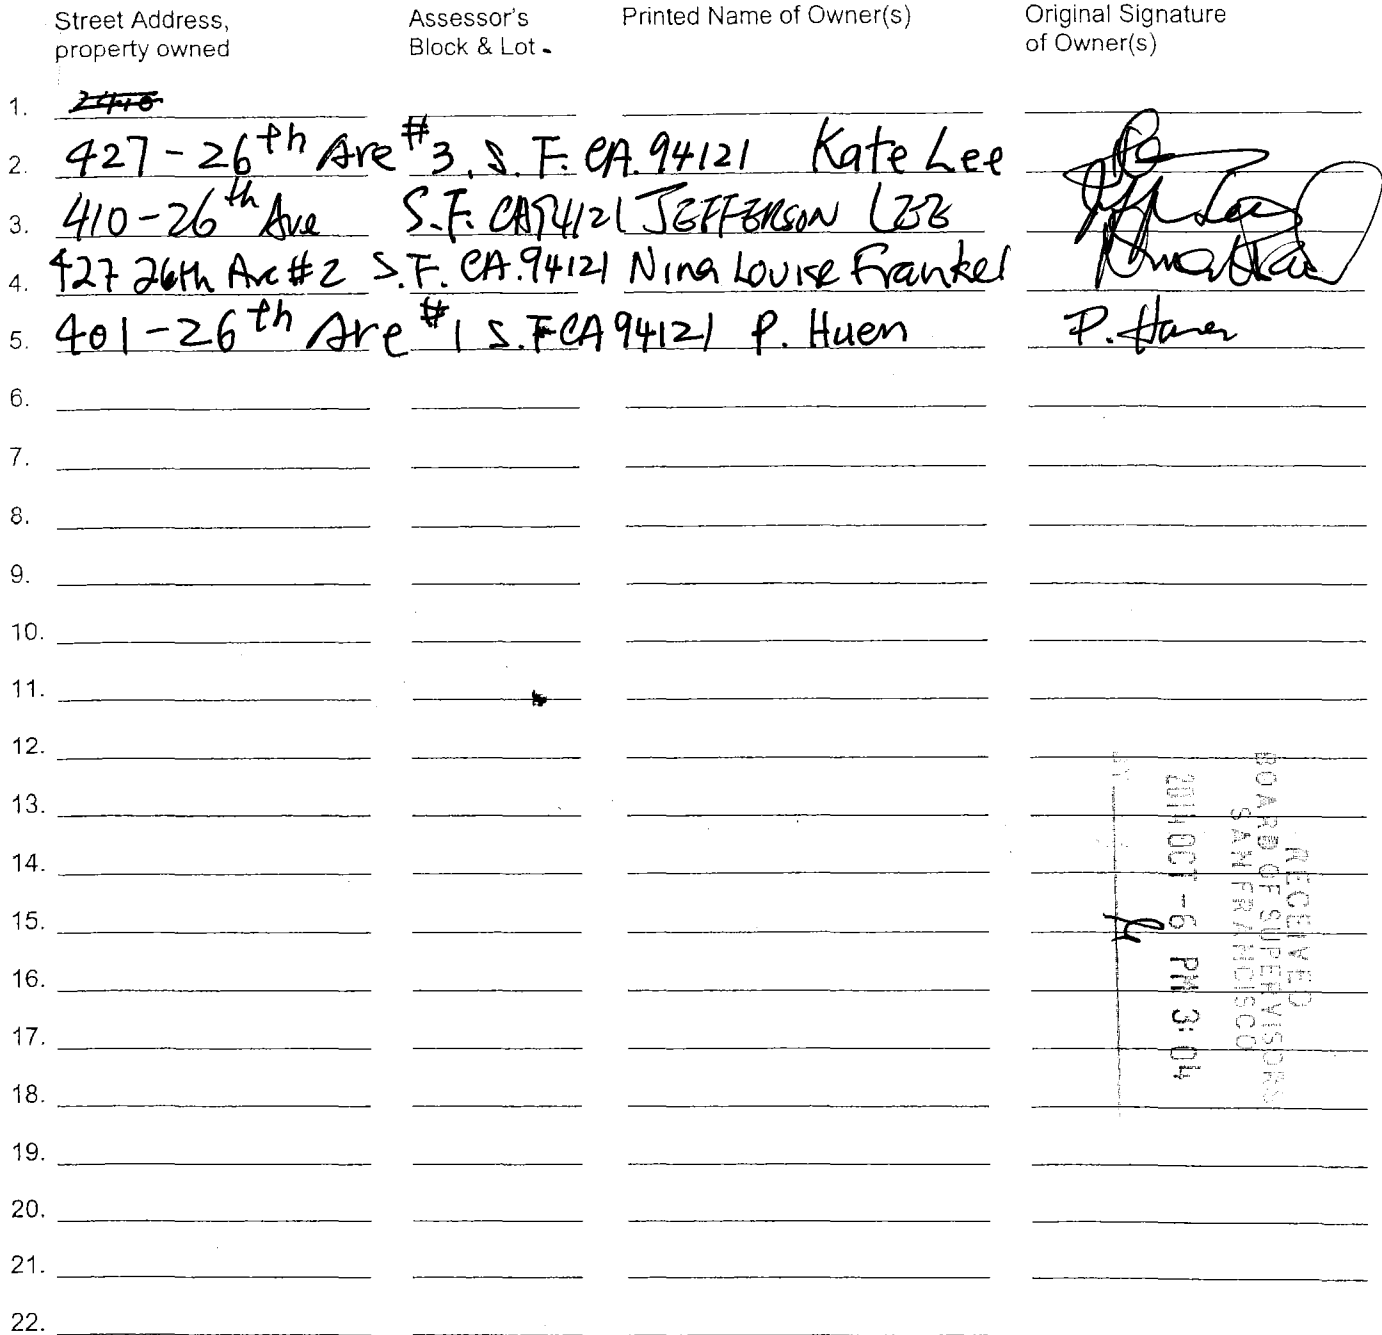 Street Address, property owned Assessor's Block & Lot Printed Name of Owner(s) Original Signature of Owner(s)
1. 2410
2. 427-26th Ave #3. S.F. CA. 94121 Kate Lee
3. 410-26th Ave S.F. CA 94121 JEFFERSON LEE
4. 427 26th Ave #2 S.F. CA. 94121 Nina Louise Frankel
5. 401-26th Ave #1 S.F CA 94121 P. Huen P. Huen
6.
7.
8.
9.
10.
11.
12.
13.
14.
15.
16.
17.
18.
19.
20.
21.
22.
RECEIVED
BOARD OF SUPERVISORS
SAN FRANCISCO
2014 OCT -6 PM 3:04
BY